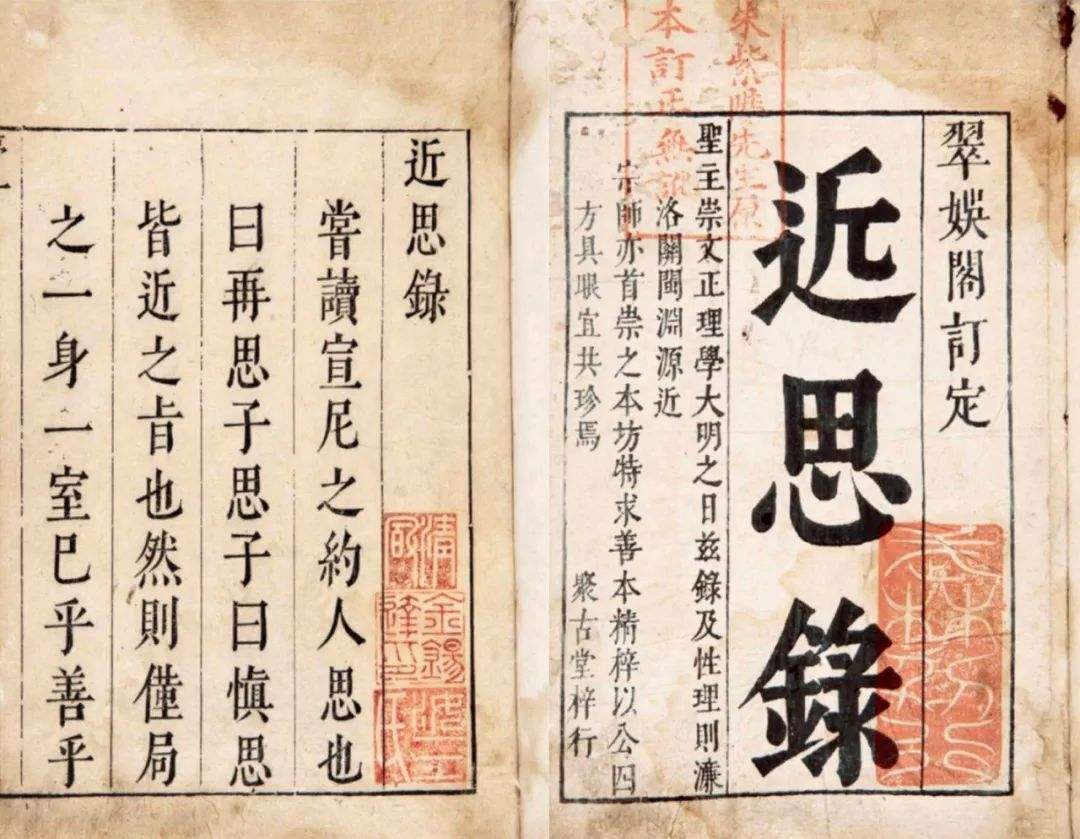 朱紫陽先生原
本訂正無訛
翠娛閣訂定
近思錄
聖主崇文正理學大明之日兹錄及性理則濂
洛關閩淵源近
宗師亦首崇之本坊特求善本精梓以公四
方具眼宜共珍焉 聚古堂梓行
近思錄
甞讀宣尼之約人思也
曰再思子思子曰慎思
皆近之㫖也然則僅局
之一身一室巳乎善乎